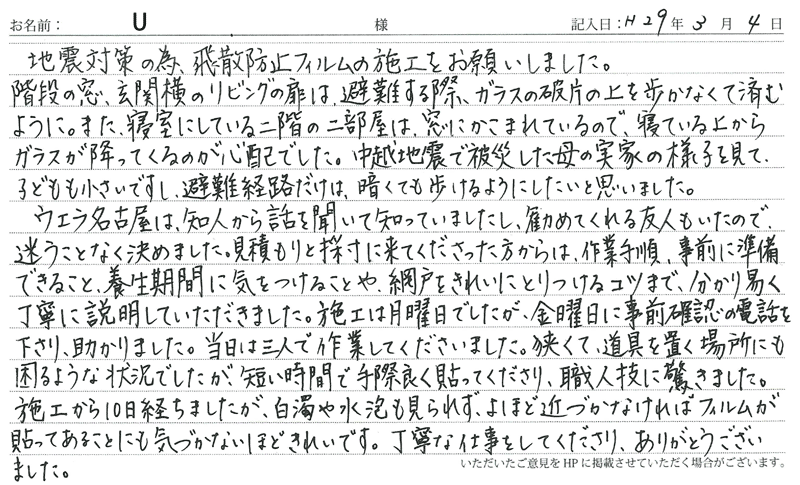 お名前： U 様 記入日：H29年3月4日
地震対策の為、飛散防止フィルムの施工をお願いしました。
階段の窓、玄関横のリビングの扉は、避難する際、ガラスの破片の上を歩かなくて済む
ように。また、寝室にしている二階の二部屋は、窓にかこまれているので、寝ている上から
ガラスが降ってくるのが心配でした。中越地震で被災した母の実家の様子を見て、
子どもも小さいですし、避難経路だけは、暗くても歩けるようにしたいと思いました。
ウエラ名古屋は、知人から話を聞いて知っていましたし、勧めてくれる友人もいたので、
迷うことなく決めました。見積もりと採寸に来てくださった方からは、作業手順、事前に準備
できること、養生期間に気をつけることや、網戸をきれいにとりつけるコツまで、分かり易く
丁寧に説明していただきました。施工は月曜日でしたが、金曜日に事前確認の電話を
下さり、助かりました。当日は三人で作業してくださいました。狭くて、道具を置く場所にも
困るような状況でしたが、短い時間で手際良く貼ってくださり、職人技に驚きました。
施工から10日経ちましたが、白濁や水泡も見られず、よほど近づかなければフィルムが
貼ってあることにも気づかないほどきれいです。丁寧な仕事をしてくださり、ありがとうござい
ました。
いただいたご意見をHPに掲載させていただく場合がございます。